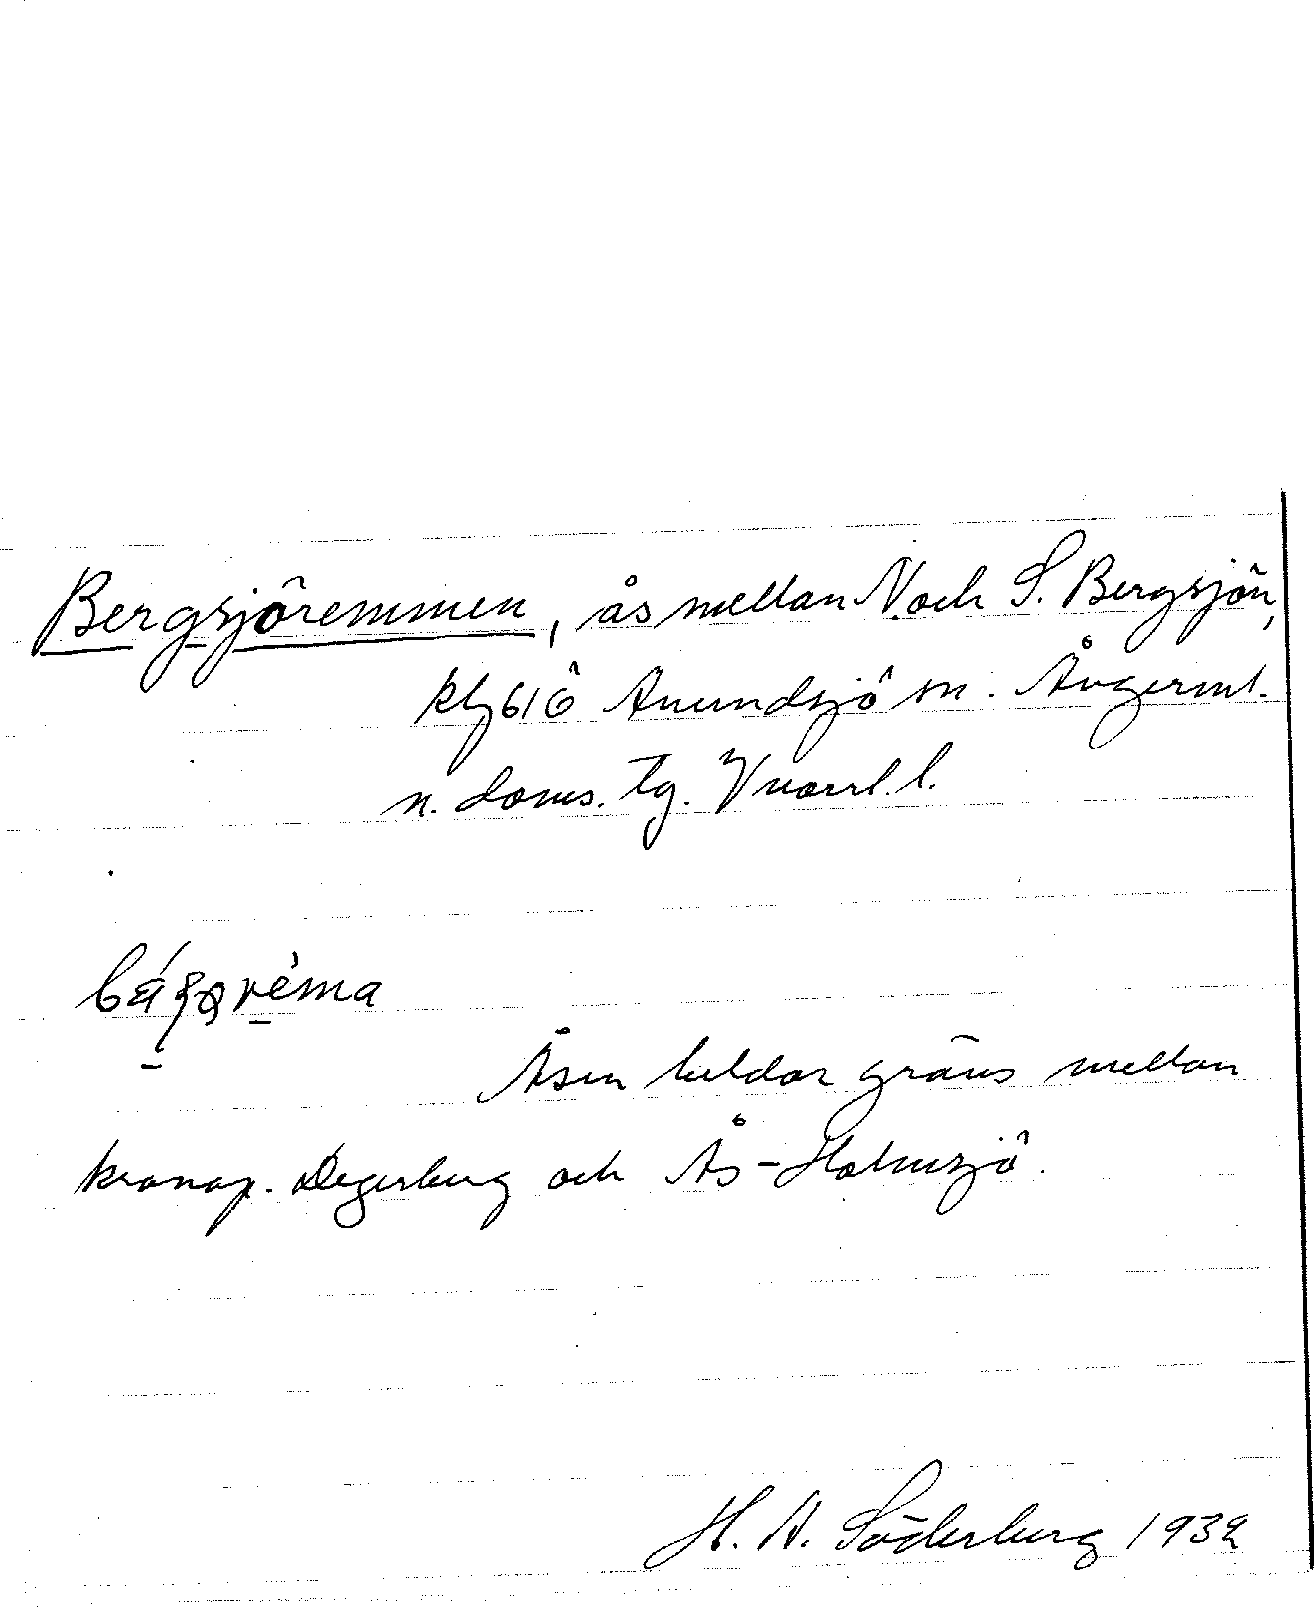 Bergsjöremmen, ås mellan N. och S. Bergsjön,
kbl 616 Anundsjö sn. Ångerml.
n. doms. tg. Vnorrl. l.
Åsen bildar gräns mellan
kronop. Degerberg och Ås-Holmsjö.
H. A. Söderberg 1932